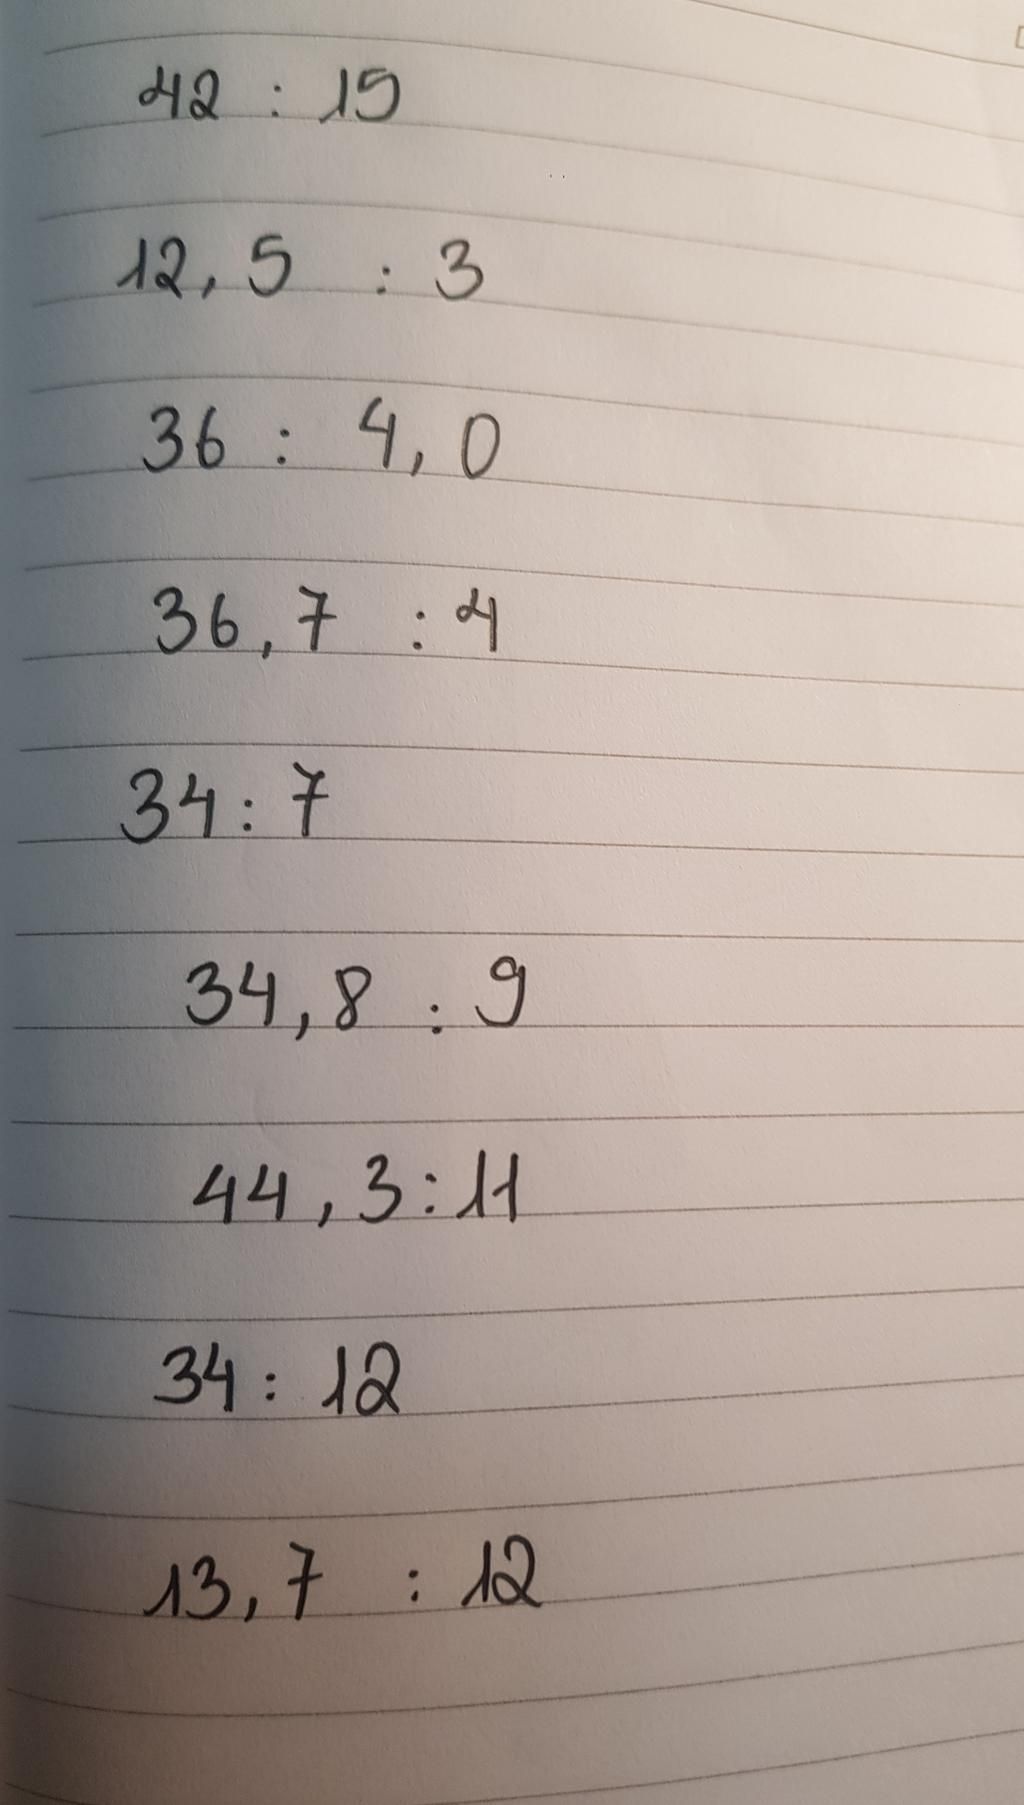 42 : 15
12,5 : 3
36 : 4,0
36,7 : 4
34 : 7
34,8 : 9
44,3 : 11
34 : 12
13,7 : 12